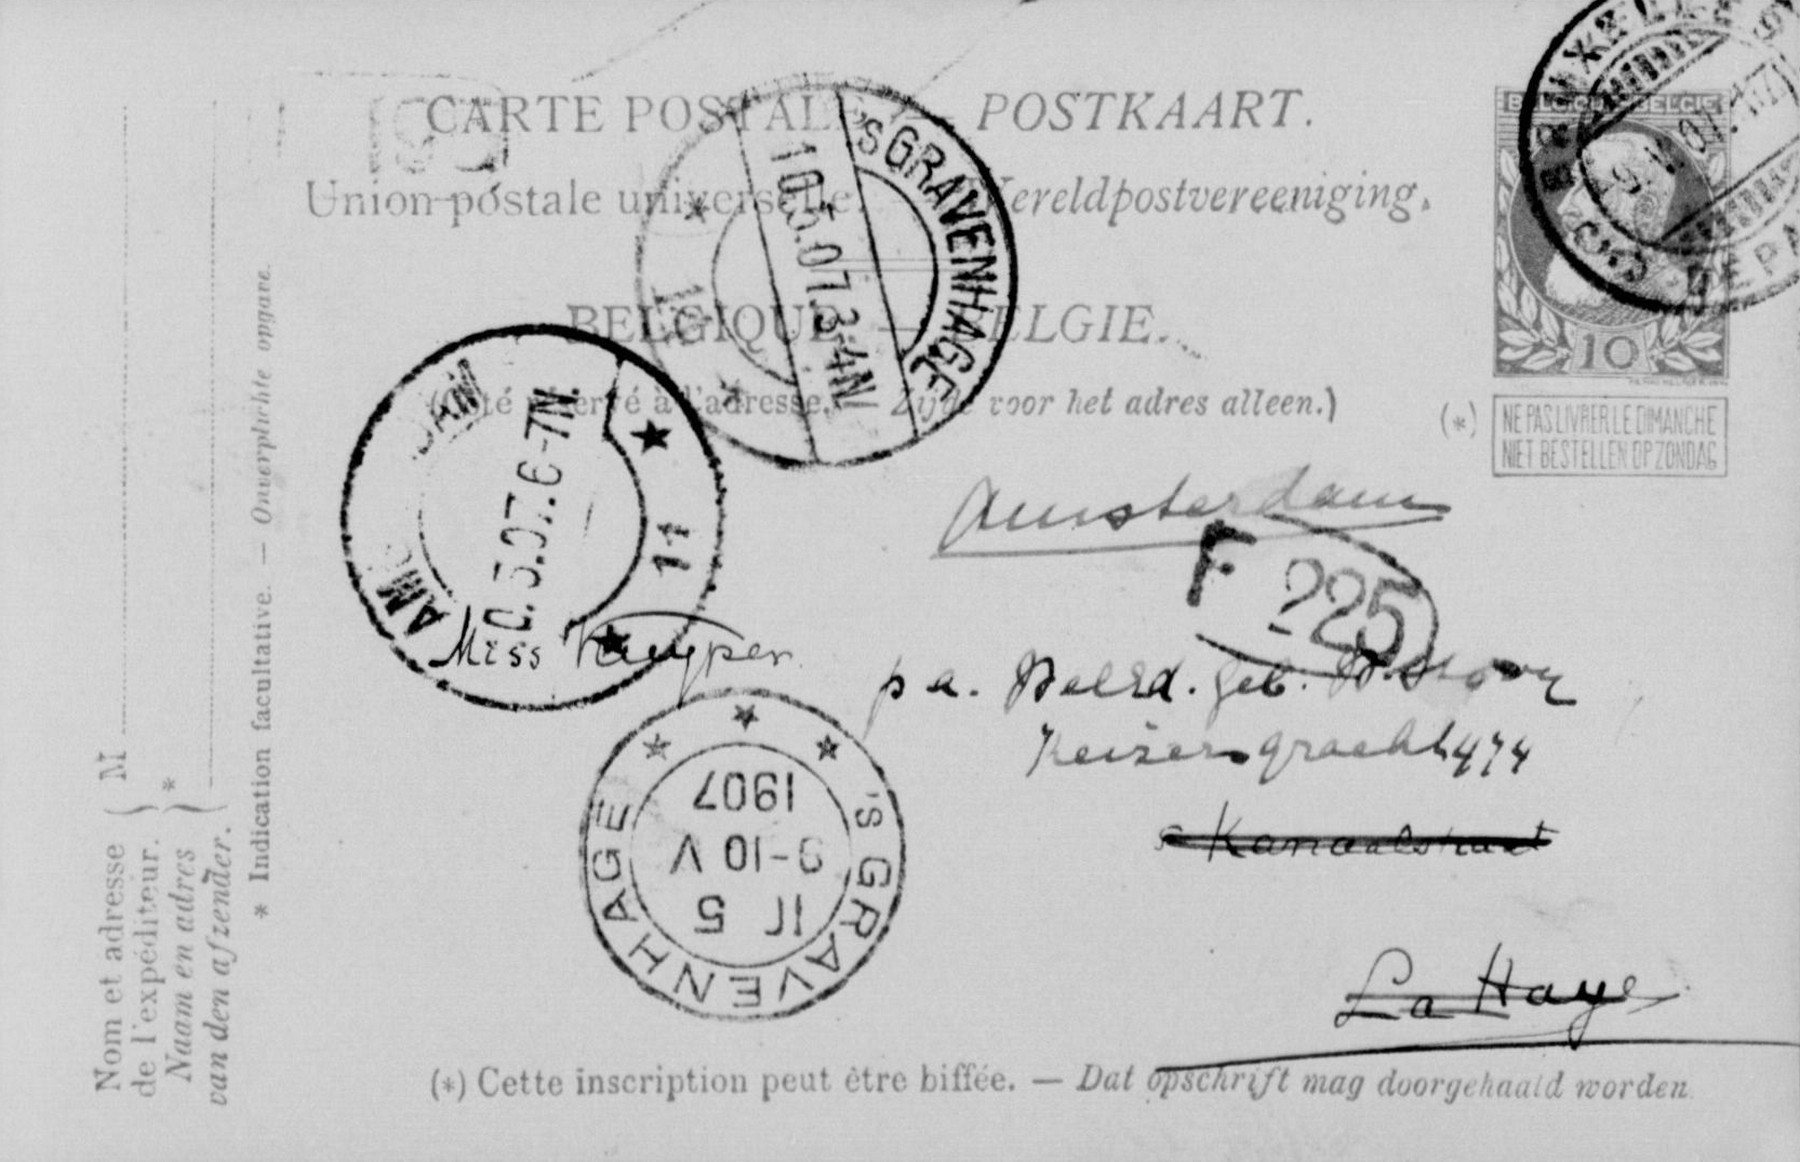 CARTE POSTALE — POSTKAART.
Union postale universelle. — Wereldpostvereeniging.
BELGIQUE — BELGIE.
(Côté réservé à l'adresse. — Zijde voor het adres alleen.)
BELGIQUE BELGIE
10
(*) NE PAS LIVRER LE DIMANCHE
NIET BESTELLEN OP ZONDAG
'S GRAVENHAGE
10.5.07.3-4N
AMSTERDAM
0.5.07.6-7N.
11
Amsterdam
F 225
Miss Kuyper
p a.
Keizersgracht 474
Kanaalstraat
La Haye
'S GRAVENHAGE
11 5
9-10 V
1907
(*) Cette inscription peut être biffée. — Dat opschrift mag doorgehaald worden.
M
Nom et adresse
de l'expéditeur.
Naam en adres
van den afzender.
* Indication facultative. — Onverplichte opgave.